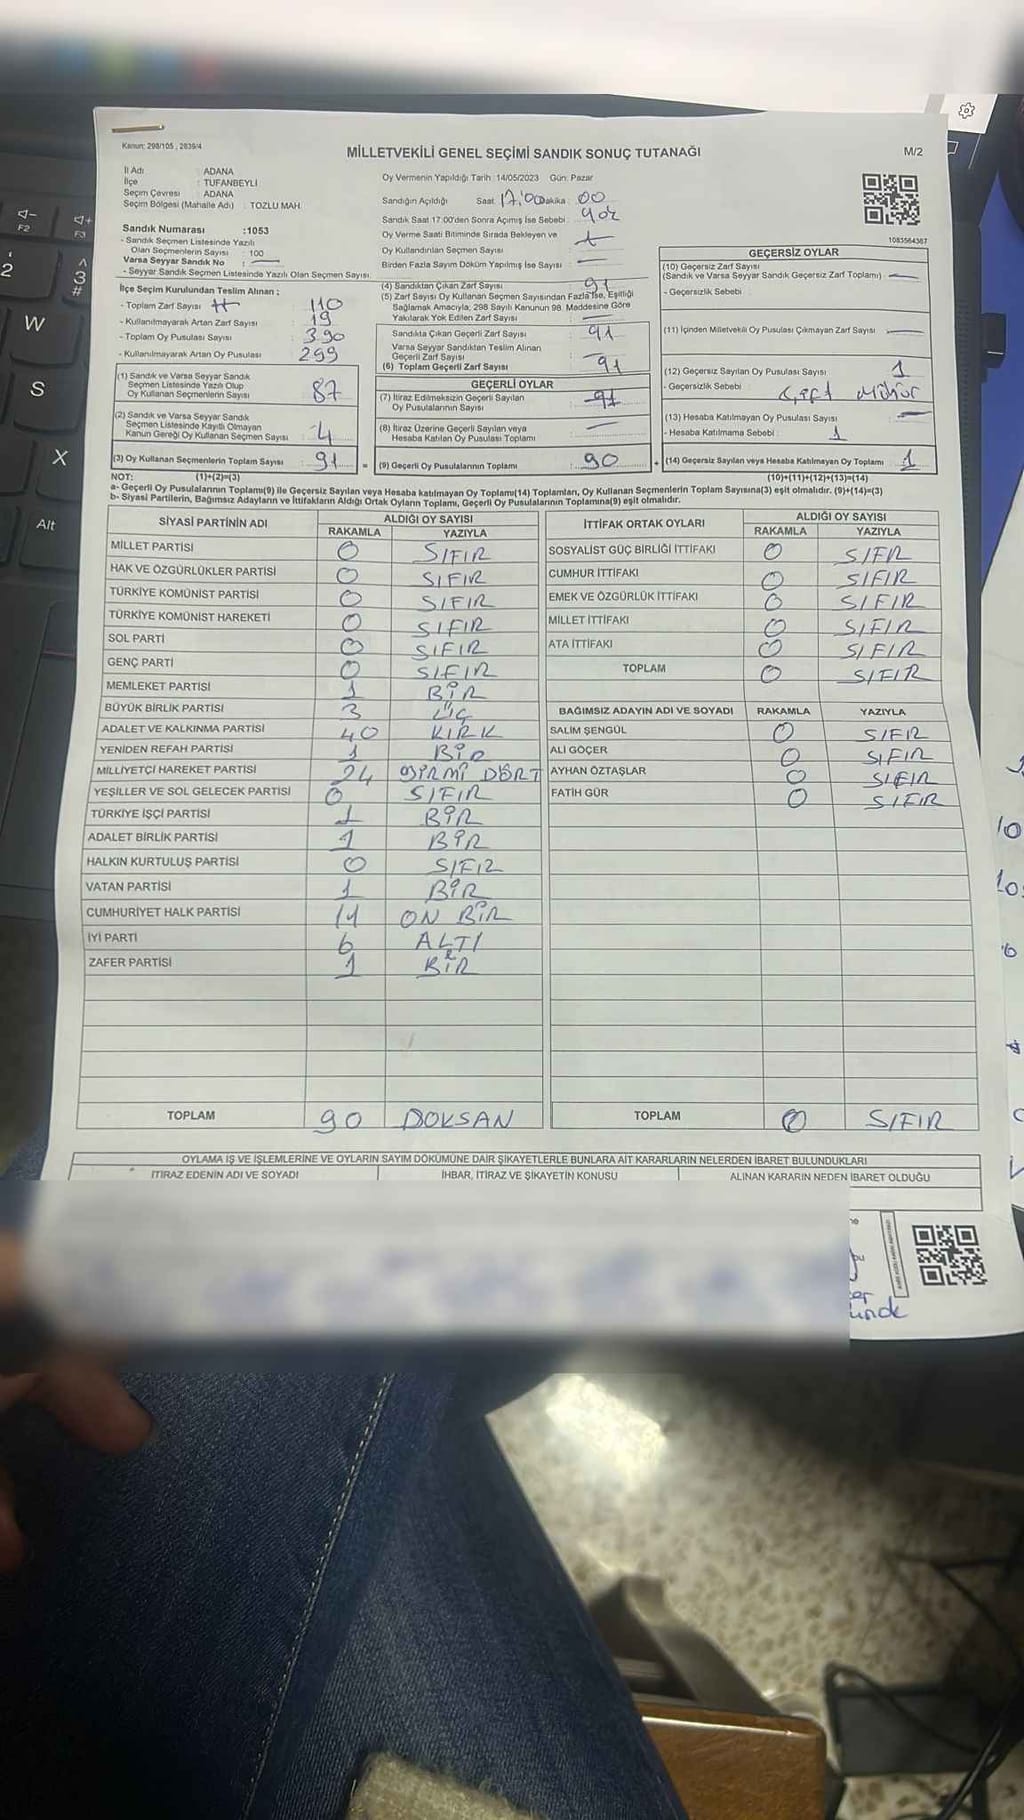 Kanun: 298/105 , 2839/4
MİLLETVEKİLİ GENEL SEÇİMİ SANDIK SONUÇ TUTANAĞI
M/2
İl Adı : ADANA
İlçe : TUFANBEYLİ
Seçim Çevresi : ADANA
Seçim Bölgesi (Mahalle Adı) : TOZLU MAH.
Sandık Numarası :1053
- Sandık Seçmen Listesinde Yazılı
Olan Seçmenlerin Sayısı : 100
Varsa Seyyar Sandık No :
- Seyyar Sandık Seçmen Listesinde Yazılı Olan Seçmen Sayısı:
İlçe Seçim Kurulundan Teslim Alınan ;
- Toplam Zarf Sayısı : 110
- Kullanılmayarak Artan Zarf Sayısı : 19
- Toplam Oy Pusulası Sayısı : 390
- Kullanılmayarak Artan Oy Pusulası : 299
(1) Sandık ve Varsa Seyyar Sandık
Seçmen Listesinde Yazılı Olup
Oy Kullanan Seçmenlerin Sayısı : 87
(2) Sandık ve Varsa Seyyar Sandık
Seçmen Listesinde Kayıtlı Olmayan
Kanun Gereği Oy Kullanan Seçmen Sayısı : 4
(3) Oy Kullanan Seçmenlerin Toplam Sayısı : 91
Oy Vermenin Yapıldığı Tarih :14/05/2023 Gün: Pazar
Sandığın Açıldığı Saat 17:00 Dakika : 00
Sandık Saat 17:00'den Sonra Açımış İse Sebebi :
Oy Verme Saati Bitiminde Sırada Bekleyen ve
Oy Kullandırılan Seçmen Sayısı :
Birden Fazla Sayım Döküm Yapılmış İse Sayısı :
(4) Sandıktan Çıkan Zarf Sayısı : 91
(5) Zarf Sayısı Oy Kullanan Seçmen Sayısından Fazla İse, Eşitliği
Sağlamak Amacıyla; 298 Sayılı Kanunun 98. Maddesine Göre
Yakılarak Yok Edilen Zarf Sayısı :
Sandıkta Çıkan Geçerli Zarf Sayısı : 91
Varsa Seyyar Sandıktan Teslim Alınan
Geçerli Zarf Sayısı :
(6) Toplam Geçerli Zarf Sayısı : 91
GEÇERLİ OYLAR
(7) İtiraz Edilmeksizin Geçerli Sayılan
Oy Pusulalarının Sayısı : 91
(8) İtiraz Üzerine Geçerli Sayılan veya
Hesaba Katılan Oy Pusulası Toplamı :
= (9) Geçerli Oy Pusulalarının Toplamı : 90
1083564367
GEÇERSİZ OYLAR
(10) Geçersiz Zarf Sayısı
(Sandık ve Varsa Seyyar Sandık Geçersiz Zarf Toplamı) :
- Geçersizlik Sebebi :
(11) İçinden Milletvekili Oy Pusulası Çıkmayan Zarf Sayısı :
(12) Geçersiz Sayılan Oy Pusulası Sayısı : 1
- Geçersizlik Sebebi : Çift Mühür
(13) Hesaba Katılmayan Oy Pusulası Sayısı :
- Hesaba Katılmama Sebebi : 1
+ (14) Geçersiz Sayılan veya Hesaba Katılmayan Oy Toplamı : 1
NOT: (1)+(2)=(3) (10)+(11)+(12)+(13)=(14)
a- Geçerli Oy Pusulalarının Toplamı(9) ile Geçersiz Sayılan veya Hesaba katılmayan Oy Toplamı(14) Toplamları, Oy Kullanan Seçmenlerin Toplam Sayısına(3) eşit olmalıdır. (9)+(14)=(3)
b- Siyasi Partilerin, Bağımsız Adayların ve İttifakların Aldığı Ortak Oyların Toplamı, Geçerli Oy Pusulalarının Toplamına(9) eşit olmalıdır.
SİYASİ PARTİNİN ADI ALDIĞI OY SAYISI
RAKAMLA YAZIYLA
MİLLET PARTİSİ 0 SIFIR
HAK VE ÖZGÜRLÜKLER PARTİSİ 0 SIFIR
TÜRKİYE KOMÜNİST PARTİSİ 0 SIFIR
TÜRKİYE KOMÜNİST HAREKETİ 0 SIFIR
SOL PARTİ 0 SIFIR
GENÇ PARTİ 0 SIFIR
MEMLEKET PARTİSİ 1 BİR
BÜYÜK BİRLİK PARTİSİ 3 ÜÇ
ADALET VE KALKINMA PARTİSİ 40 KIRK
YENİDEN REFAH PARTİSİ 1 BİR
MİLLİYETÇİ HAREKET PARTİSİ 24 YİRMİ DÖRT
YEŞİLLER VE SOL GELECEK PARTİSİ 0 SIFIR
TÜRKİYE İŞÇİ PARTİSİ 1 BİR
ADALET BİRLİK PARTİSİ 1 BİR
HALKIN KURTULUŞ PARTİSİ 0 SIFIR
VATAN PARTİSİ 1 BİR
CUMHURİYET HALK PARTİSİ 11 ON BİR
İYİ PARTİ 6 ALTI
ZAFER PARTİSİ 1 BİR
TOPLAM 90 DOKSAN
İTTİFAK ORTAK OYLARI ALDIĞI OY SAYISI
RAKAMLA YAZIYLA
SOSYALİST GÜÇ BİRLİĞİ İTTİFAKI 0 SIFR
CUMHUR İTTİFAKI 0 SIFIR
EMEK VE ÖZGÜRLÜK İTTİFAKI 0 SIFIR
MİLLET İTTİFAKI 0 SIFIR
ATA İTTİFAKI 0 SIFIR
TOPLAM 0 SIFIR
BAĞIMSIZ ADAYIN ADI VE SOYADI RAKAMLA YAZIYLA
SALİM ŞENGÜL 0 SIFIR
ALİ GÖÇER 0 SIFIR
AYHAN ÖZTAŞLAR 0 SIFIR
FATİH GÜR 0 SIFIR
TOPLAM 0 SIFIR
OYLAMA İŞ VE İŞLEMLERİNE VE OYLARIN SAYIM DÖKÜMÜNE DAİR ŞİKAYETLERLE BUNLARA AİT KARARLARIN NELERDEN İBARET BULUNDUKLARI
İTİRAZ EDENİN ADI VE SOYADI İHBAR, İTİRAZ VE ŞİKAYETİN KONUSU ALINAN KARARIN NEDEN İBARET OLDUĞU